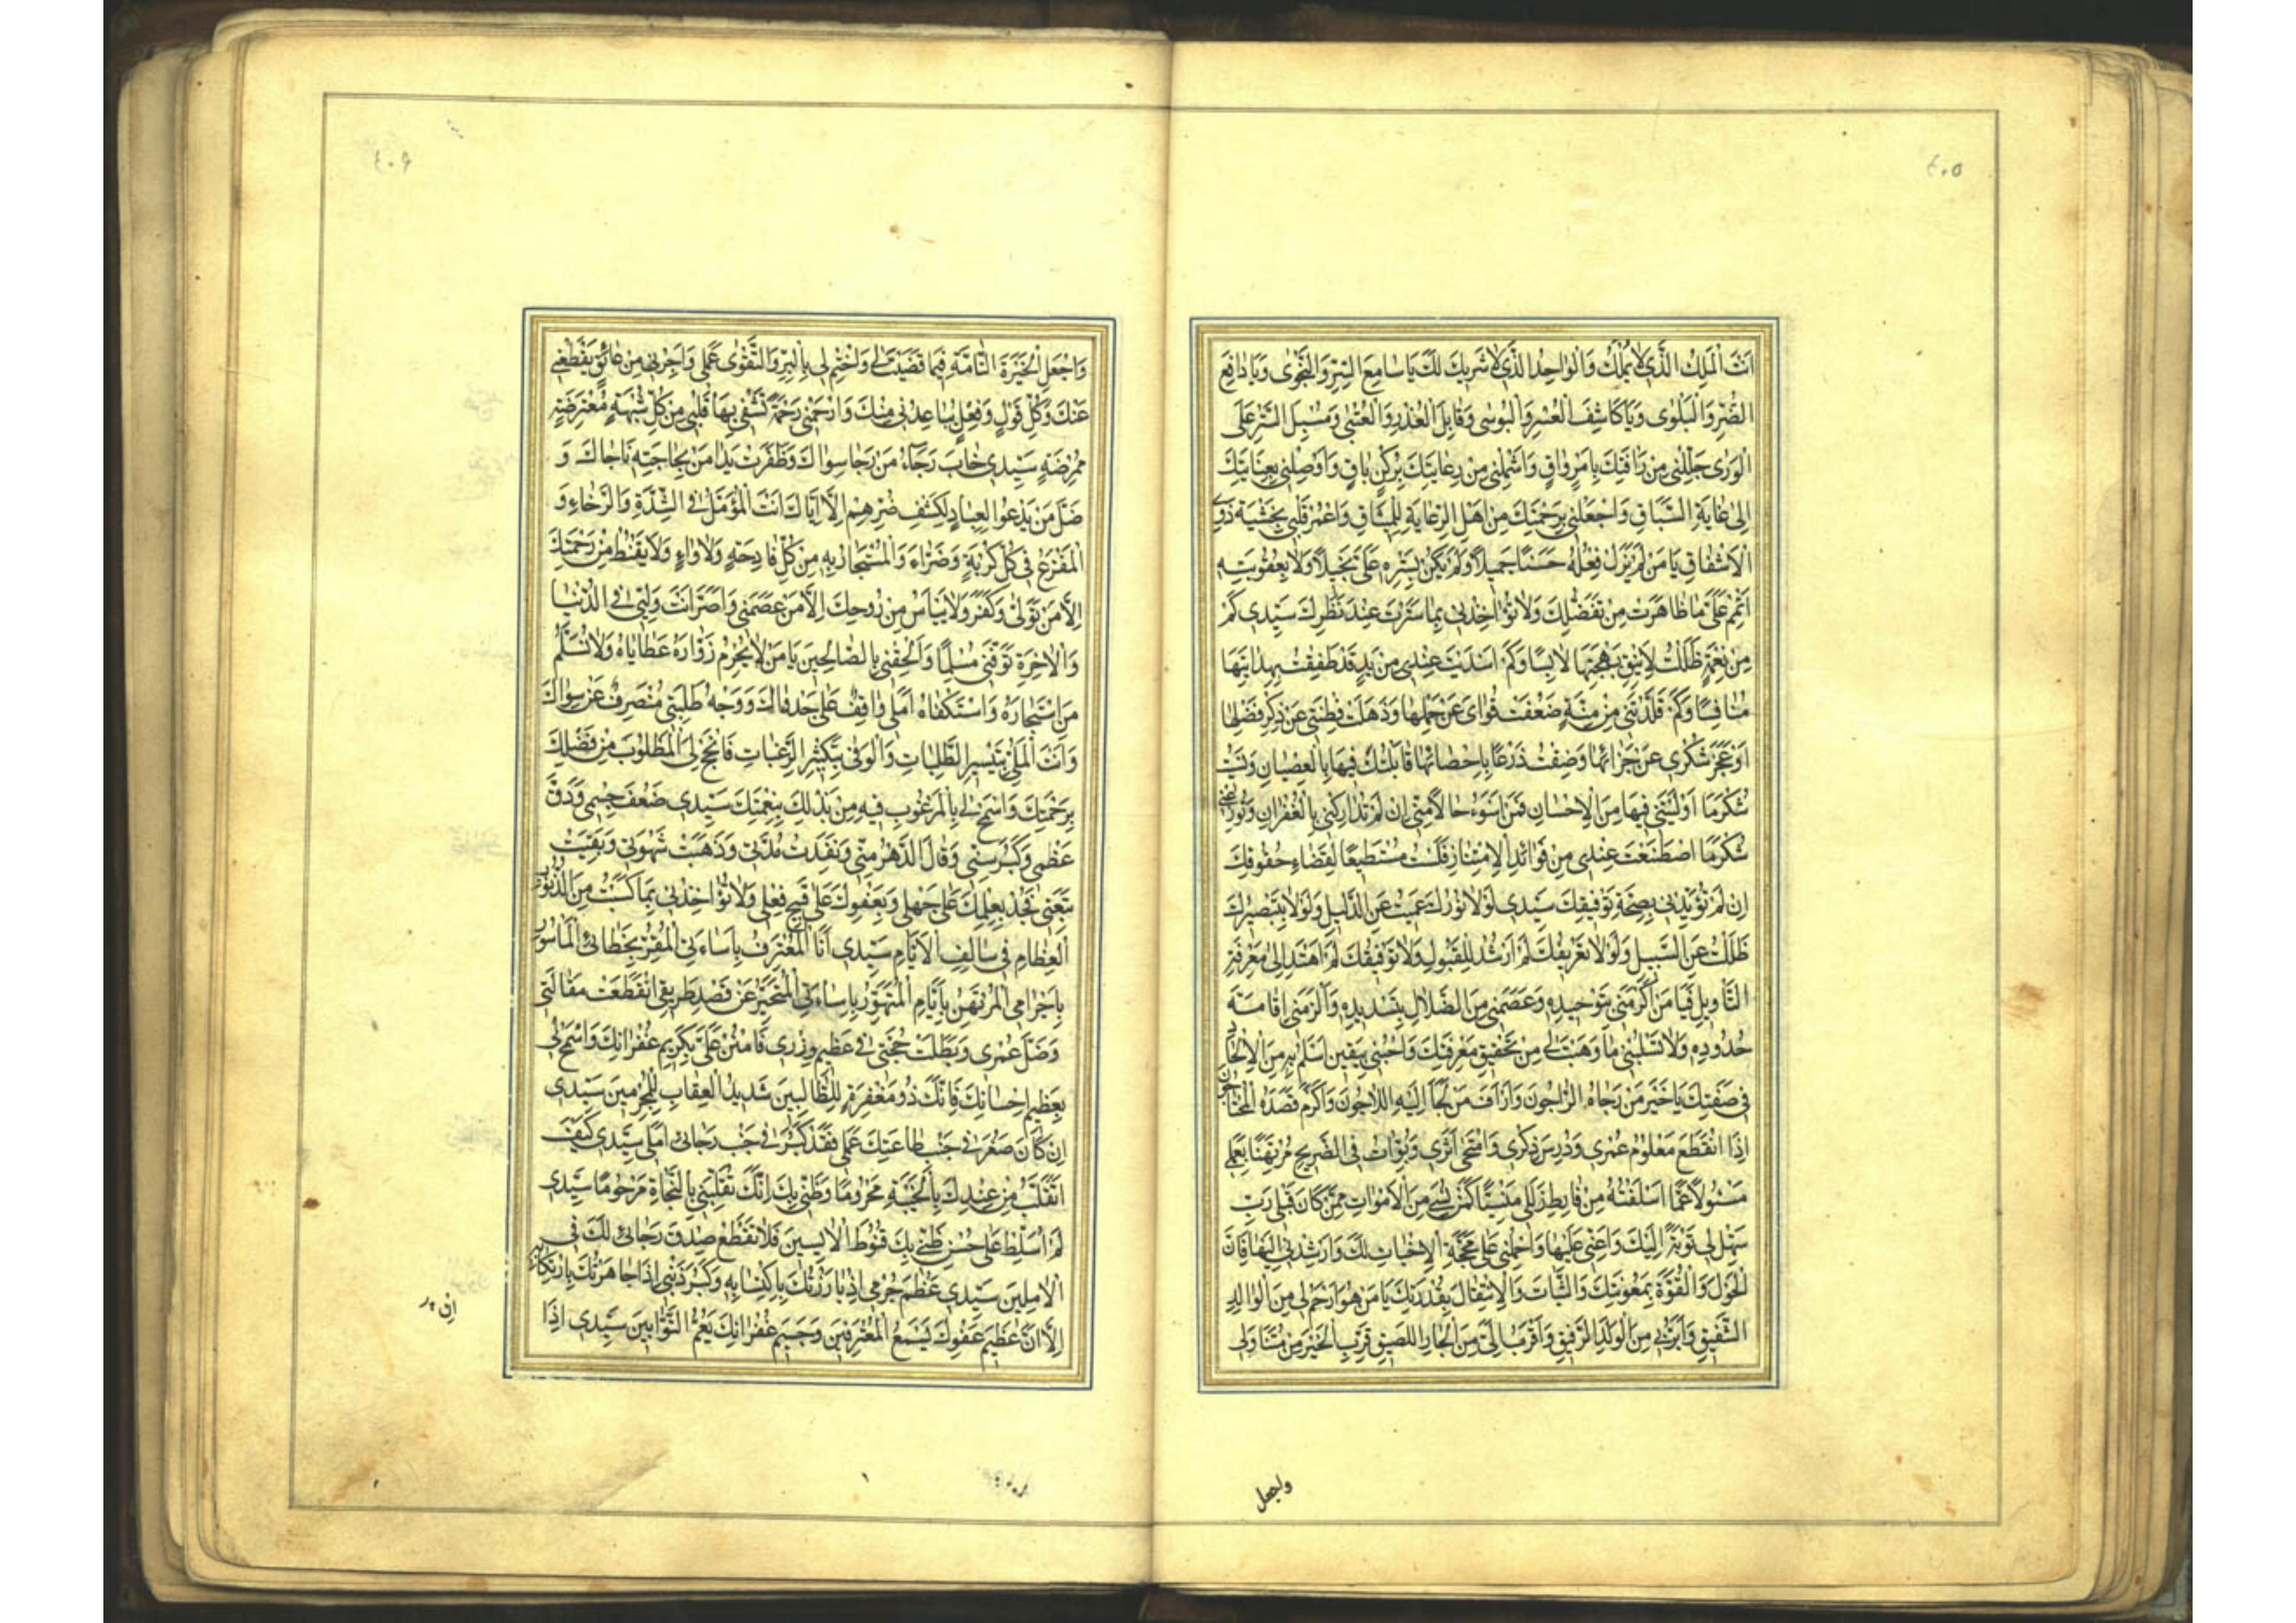 ٤٠٥
اَنْتَ الْمَلِكُ الَّذِي لَا يُمْلَكُ وَالْوَاحِدُ الَّذِي لَا شَرِيكَ لَكَ يَا سَامِعَ السِّرِّ وَالنَّجْوٰى وَيَا دَافِعَ
الضُّرِّ وَالْبَلْوٰى وَيَا كَاشِفَ الْعُسْرِ وَالْبُوسٰى وَقَابِلَ الْعُذْرِ وَالْعُتْبٰى وَمُسْبِلَ السِّتْرِ عَلَى
الْوَرٰى جَلِّلْنِي مِنْ رَافَتِكَ بِاَمْرٍ وَاقٍ وَاشْمَلْنِي مِنْ رِعَايَتِكَ بِرُكْنٍ بَاقٍ وَاَوْصِلْنِي بِعِنَايَتِكَ
اِلٰى غَايَةِ السِّبَاقِ وَاجْعَلْنِي بِرَحْمَتِكَ مِنْ اَهْلِ الرِّعَايَةِ لِلْمِيثَاقِ وَاعْمُرْ قَلْبِي بِخَشْيَةِ ذَوِي
الْاِشْفَاقِ يَا مَنْ لَمْ يَزَلْ فِعْلُهُ حَسَنًا جَمِيلًا وَلَمْ يَكُنْ بِسِتْرِهِ عَلَيَّ بَخِيلًا وَلَا بِعُقُوبَتِهِ
اَتْمِمْ عَلَيَّ مَا ظَاهَرْتَ مِنْ تَفَضُّلِكَ وَلَا تُؤَاخِذْنِي بِمَا سَتَرْتَ عِنْدَ نَظَرِكَ سَيِّدِي كَمْ
مِنْ نِعْمَةٍ ظَلَلْتُ لِاَنِيقِ بَهْجَتِهَا لَابِسًا وَكَمْ اَسْدَيْتَ عِنْدِي مِنْ يَدٍ قَدْ طَفِقْتُ بِهِدَايَتِهَا
مُنَافِسًا وَكَمْ قَلَّدْتَنِي مِنْ مِنَّةٍ ضَعُفَتْ قُوَايَ عَنْ حَمْلِهَا وَذَهَلَتْ فِطْنَتِي عَنْ ذِكْرِ فَضْلِهَا
اَوْ عَجَزَ شُكْرِي عَنْ جَزَائِهَا وَضِقْتُ ذَرْعًا بِاِحْصَائِهَا قَابَلْتُكَ فِيهَا بِالْعِصْيَانِ وَنَسِيتُ
شُكْرَ مَا اَوْلَيْتَنِي فِيهَا مِنَ الْاِحْسَانِ فَمَنْ اَسْوَءُ حَالًا مِنِّي اِنْ لَمْ تَتَدَارَكْنِي بِالْغُفْرَانِ وَتُوزِعْنِي
شُكْرَ مَا اصْطَنَعْتَ عِنْدِي مِنْ فَوَائِدِ الْاِمْتِنَانِ فَلَسْتُ مُسْتَطِيعًا لِقَضَاءِ حُقُوقِكَ
اِنْ لَمْ تُؤَيِّدْنِي بِصِحَّةِ تَوْفِيقِكَ سَيِّدِي لَوْلَا نُورُكَ عَمِيتُ عَنِ الدَّلِيلِ وَلَوْلَا تَبْصِيرُكَ
ظَلَلْتُ عَنِ السَّبِيلِ وَلَوْلَا تَعْرِيفُكَ لَمْ اَرْشُدْ لِلْقَبُولِ وَلَا تَوْفِيقُكَ لَمْ اَهْتَدِ اِلٰى مَعْرِفَةِ
التَّاوِيلِ فَيَا مَنْ اَكْرَمَنِي بِتَوْحِيدِهِ وَعَصَمَنِي مِنَ الضَّلَالِ بِتَسْدِيدِهِ وَاَلْزَمَنِي اِقَامَةَ
حُدُودِهِ وَلَا تَسْلُبْنِي مَا وَهَبْتَ لِي مِنْ تَحْقِيقِ مَعْرِفَتِكَ وَاَحْيِنِي بِيَقِينٍ اَسْلَمُ بِهِ مِنَ الْاِلْحَادِ
فِي صِفَتِكَ يَا خَيْرَ مَنْ رَجَاهُ الرَّاجُونَ وَاَرْاَفَ مَنْ لَجَاَ اِلَيْهِ اللَّاجُونَ وَاَكْرَمَ مَنْ قَصَدَهُ الْمُحْتَاجُونَ
اِذَا انْقَطَعَ مَعْلُومُ عُمْرِي وَدُرِسَ ذِكْرِي وَامْتَحٰى اَثَرِي وَبُوِّاْتُ فِي الضَّرِيحِ مُرْتَهَنًا بِعَمَلِي
مَسْئُولًا عَمَّا اَسْلَفْتُهُ مِنْ فَارِطِ زَلَلِي مَنْسِيًّا كَمَنْ نُسِيَ مِنَ الْاَمْوَاتِ مِمَّنْ كَانَ قَبْلِي رَبِّ
سَهِّلْ لِي تَوْبَةً اِلَيْكَ وَاَعِنِّي عَلَيْهَا وَاحْمِلْنِي عَلٰى مَحَجَّةِ الْاِخْبَاتِ لَكَ وَاَرْشِدْنِي اِلَيْهَا فَاِنَّ
الْحَوْلَ وَالْقُوَّةَ بِمَعُونَتِكَ وَالثَّبَاتَ وَالْاِنْتِقَالَ بِقُدْرَتِكَ يَا مَنْ هُوَ اَرْحَمُ لِي مِنَ الْوَالِدِ
الشَّفِيقِ وَاَبَرُّ بِي مِنَ الْوَلَدِ الرَّفِيقِ وَاَقْرَبُ اِلَيَّ مِنَ الْجَارِ اللَّصِيقِ قَرِّبِ الْخَيْرَ مِنْ مُتَنَاوَلِي
واجعل
٤٠٦
وَاجْعَلِ الْخِيَرَةَ التَّامَّةَ فِيمَا قَضَيْتَ لِي وَاخْتِمْ لِي بِالْبِرِّ وَالتَّقْوٰى عَمَلِي وَاَجِرْنِي مِنْ عَائِقٍ يَقْطَعُنِي
عَنْكَ وَكُلِّ قَوْلٍ وَفِعْلٍ يُبَاعِدُنِي مِنْكَ وَارْحَمْنِي رَحْمَةً تَشْفِي بِهَا قَلْبِي مِنْ كُلِّ شُبْهَةٍ مُعْتَرِضَةٍ
مُمْرِضَةٍ سَيِّدِي خَابَ رَجَاءُ مَنْ رَجَا سِوَاكَ وَظَفِرَتْ يَدَا مَنْ بِحَاجَتِهِ نَاجَاكَ وَ
ضَلَّ مَنْ يَدْعُوا الْعِبَادَ لِكَشْفِ ضُرِّهِمْ اِلَّا اِيَّاكَ اَنْتَ الْمُؤَمَّلُ فِي الشِّدَّةِ وَالرَّخَاءِ وَ
الْمَفْزَعُ فِي كُلِّ كُرْبَةٍ وَضَرَّاءَ وَالْمُسْتَجَارُ بِهِ مِنْ كُلِّ فَادِحَةٍ وَلَاْوَاءٍ وَلَا يَقْنَطُ مِنْ رَحْمَتِكَ
اِلَّا مَنْ تَوَلّٰى وَكَفَرَ وَلَا يَيْاَسُ مِنْ رَوْحِكَ اِلَّا مَنْ عَصٰى وَاَصَرَّ اَنْتَ وَلِيِّي فِي الدُّنْيَا
وَالْاٰخِرَةِ تَوَفَّنِي مُسْلِمًا وَاَلْحِقْنِي بِالصَّالِحِينَ يَا مَنْ لَا يَحْرِمُ زُوَّارَهُ عَطَايَاهُ وَلَا يُسْلِمُ
مَنِ اسْتَجَارَهُ وَاسْتَكْفَاهُ اَمَلِي وَاقِفٌ عَلٰى جَدْوَاكَ وَوَجْهُ طَلِبَتِي مُنْصَرِفٌ عَنْ سِوَاكَ
وَاَنْتَ الْمَلِيُّ بِتَيْسِيرِ الطَّلِبَاتِ وَالْوَفِيُّ بِتَكْثِيرِ الرَّغَبَاتِ فَاَنْجِحْ لِيَ الْمَطْلُوبَ مِنْ فَضْلِكَ
بِرَحْمَتِكَ وَاسْمَحْ لِي بِالْمَرْغُوبِ فِيهِ مِنْ بَذْلِكَ بِنِعْمَتِكَ سَيِّدِي ضَعُفَ جِسْمِي وَدَقَّ
عَظْمِي وَكَبُرَ سِنِّي وَنَالَ الدَّهْرُ مِنِّي وَنَفِدَتْ مُدَّتِي وَذَهَبَتْ شَهْوَتِي وَبَقِيَتْ
تَبِعَتِي فَجُدْ بِحِلْمِكَ عَلٰى جَهْلِي وَبِعَفْوِكَ عَلٰى قَبِيحِ فِعْلِي وَلَا تُؤَاخِذْنِي بِمَا كَسَبْتُ مِنَ الذُّنُوبِ
الْعِظَامِ فِي سَالِفِ الْاَيَّامِ سَيِّدِي اَنَا الْمُعْتَرِفُ بِاِسَاءَتِي الْمُقِرُّ بِخَطَائِي الْمَاْسُورُ
بِاَجْرَامِي الْمُرْتَهَنُ بِآثَامِي الْمُتَهَوِّرُ بِاِسَاءَتِي الْمُتَحَيِّرُ عَنْ قَصْدِ طَرِيقِي انْقَطَعَتْ مَقَالَتِي
وَضَلَّ عُمْرِي وَبَطَلَتْ حُجَّتِي فِي عَظِيمِ وِزْرِي فَامْنُنْ عَلَيَّ بِكَرِيمِ غُفْرَانِكَ وَاسْمَحْ لِي
بِعَظِيمِ اِحْسَانِكَ فَاِنَّكَ ذُو مَغْفِرَةٍ لِلطَّالِبِينَ شَدِيدُ الْعِقَابِ لِلْمُجْرِمِينَ سَيِّدِي
اِنْ كَانَ صَغُرَ فِي جَنْبِ طَاعَتِكَ عَمَلِي فَقَدْ كَبُرَ فِي جَنْبِ رَجَائِي اَمَلِي سَيِّدِي كَيْفَ
اَنْقَلِبُ مِنْ عِنْدِكَ بِالْخَيْبَةِ مَحْرُومًا وَظَنِّي بِكَ اِنَّكَ تَقْلِبُنِي بِالنَّجَاةِ مَرْحُومًا سَيِّدِي
لَمْ اُسَلِّطْ عَلٰى حُسْنِ ظَنِّي بِكَ قُنُوطَ الْاٰيِسِينَ فَلَا تَقْطَعْ صِدْقَ رَجَائِي لَكَ فِي
الْاٰمِلِينَ سَيِّدِي عَظُمَ جُرْمِي اِذْ بَارَزْتُكَ بِاكْتِسَابِهِ وَكَبُرَ ذَنْبِي اِذْ جَاهَرْتُكَ بِارْتِكَابِهِ
اِلَّا اَنَّ عَظِيمَ عَفْوِكَ يَسَعُ الْمُعْتَرِفِينَ وَجَسِيمَ غُفْرَانِكَ يَعُمُّ التَّوَّابِينَ سَيِّدِي اِذَا